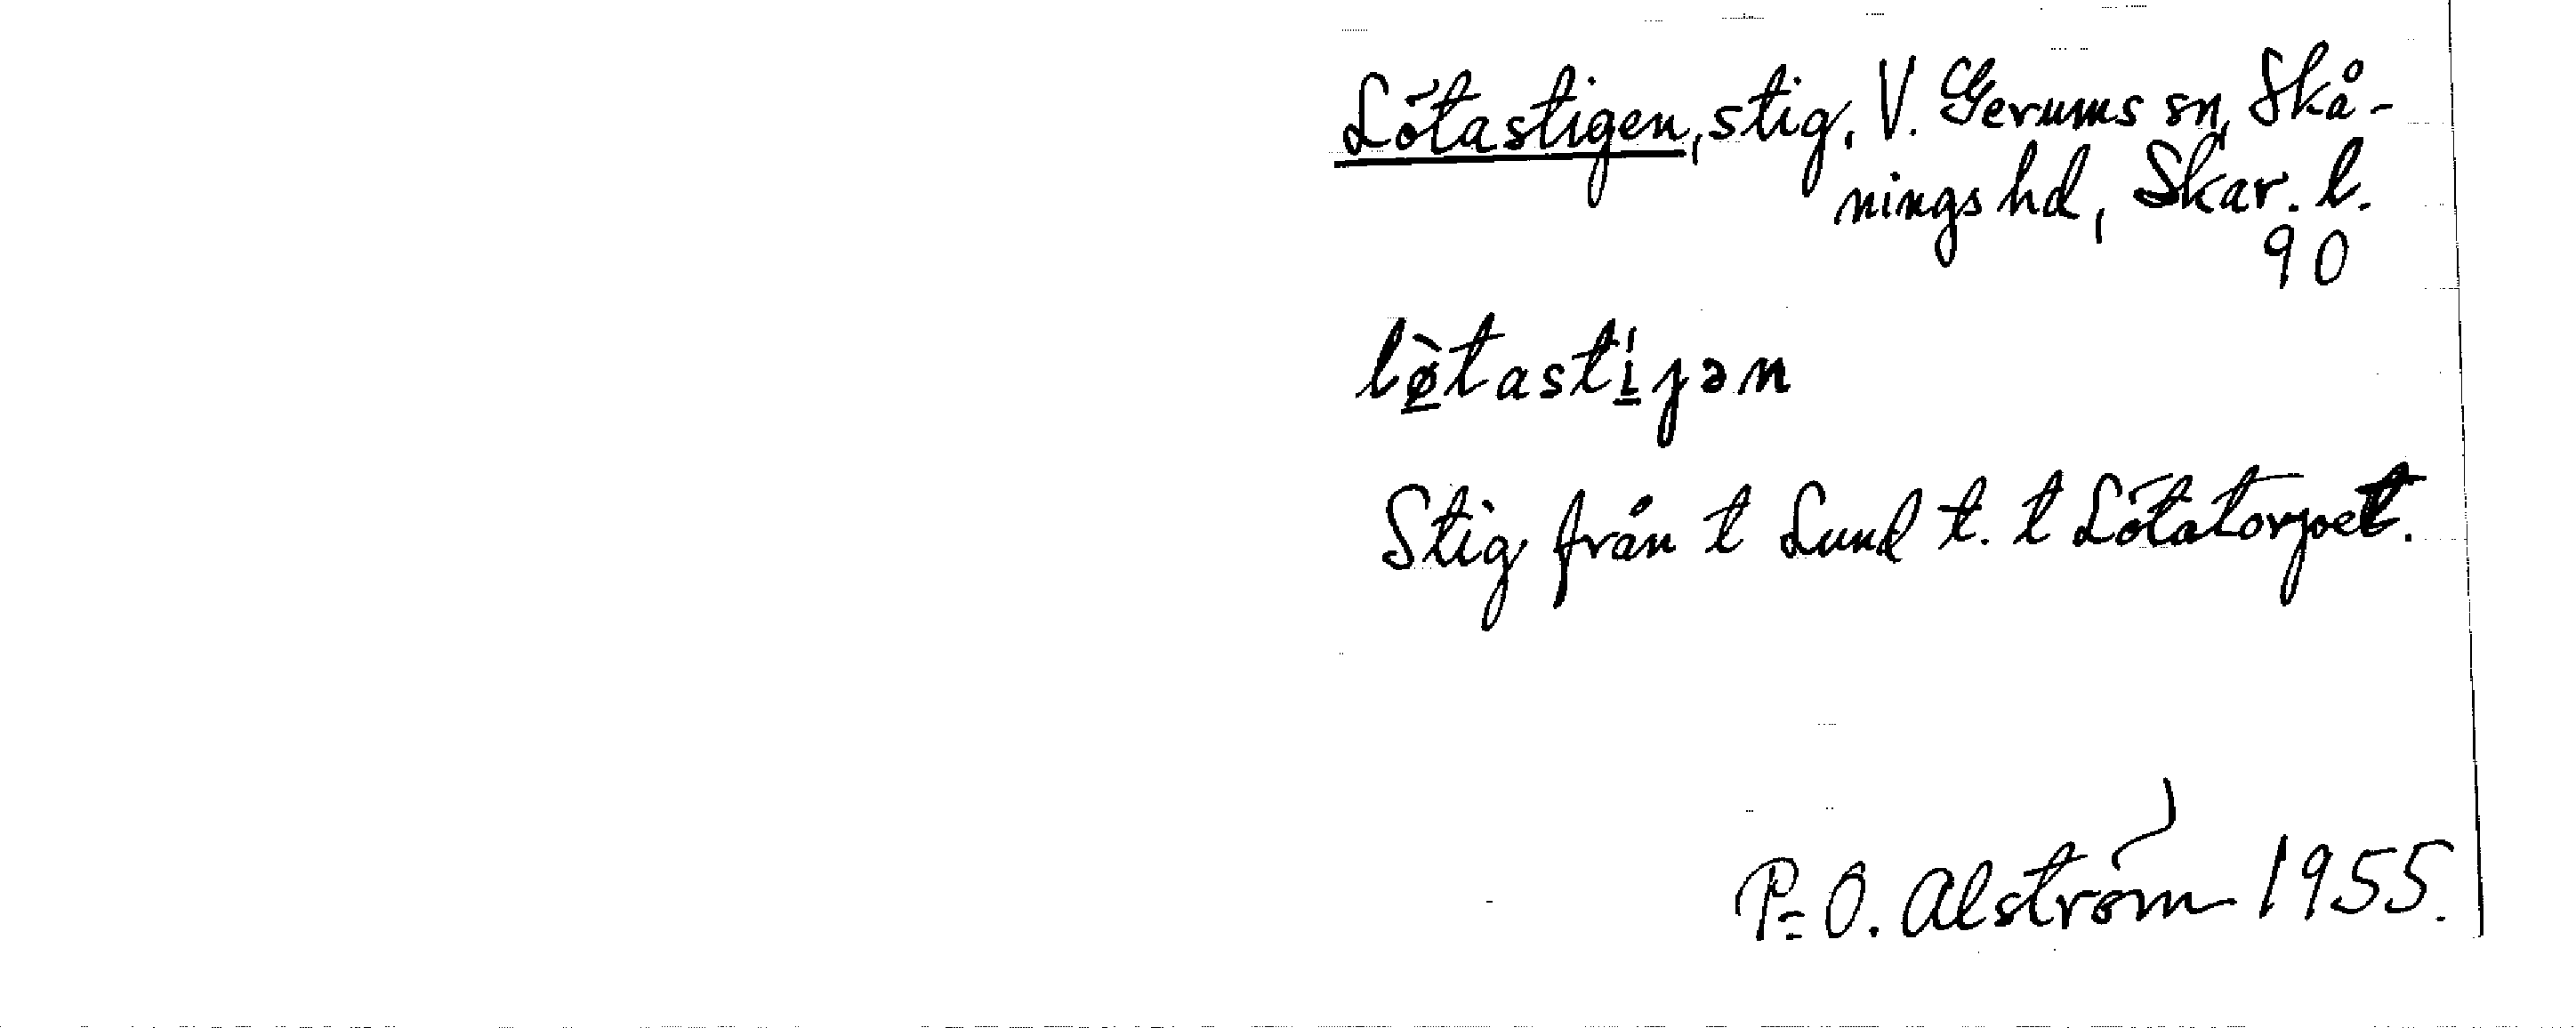 Lötastigen, stig, V. Gerums sn, Skå-
nings hd, Skar. l.
90
lø̀tastíjən
Stig från t Lund t. t Lötatorpet.
P-O. Alström 1955.